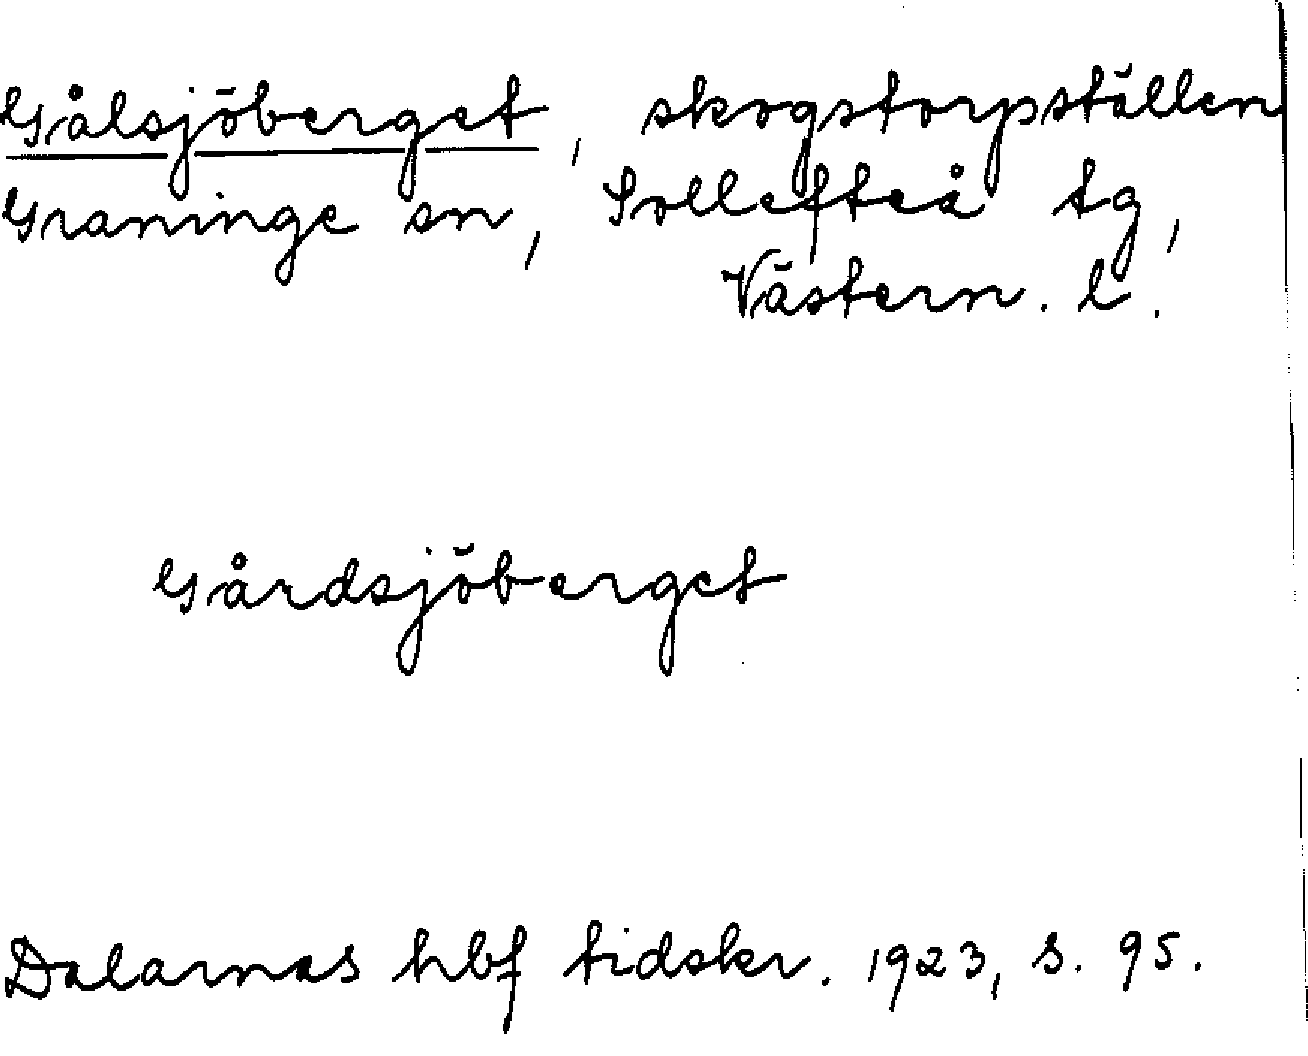 Gålsjöberget, skogstorpställen
Graninge sn, Sollefteå tg,
Västern. l.
Gårdsjöberget
Dalarnas hbf tidskr. 1923, s. 95.